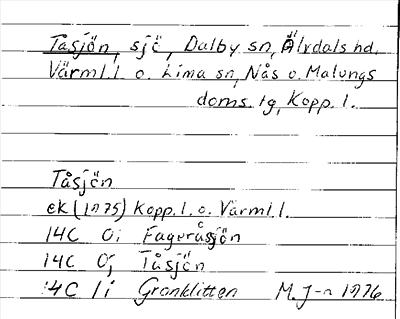 Tåsjön, sjö, Dalby sn, Älvdals hd,
Värml. l. o. Lima sn, Nås o. Malungs
doms. lg, Kopp. l.
Tåsjön
ek (1975) Kopp. l. o. Värml. l.
14C 0i Fageråsjön
14C 0j Tåsjön
14C 1i Granklitten M. J-n 1976